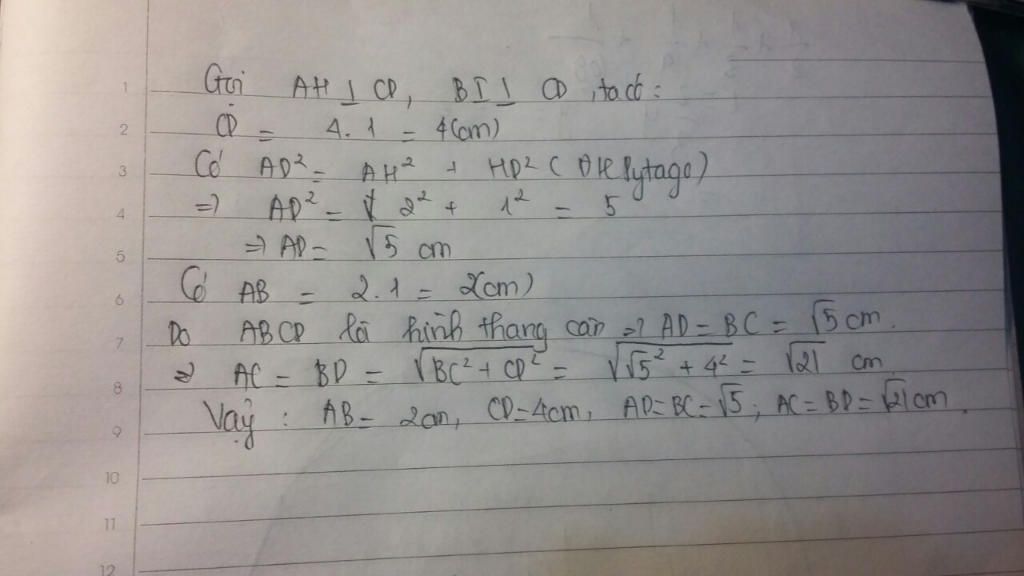 Gọi AH ⊥ CD, BI ⊥ CD, ta có:
1
CD = 4.1 = 4(cm)
2
Có AD² = AH² + HD² (ĐK Pytago)
3
=> AD² = √ 2² + 1² = 5
4
=> AD = √5 cm
5
Có AB = 2.1 = 2(cm)
6
Do ABCD là hình thang cân => AD = BC = √5 cm.
7
=> AC = BD = √(BC² + CD²) = √(√5² + 4²) = √21 cm.
8
Vậy: AB = 2cm, CD = 4cm, AD = BC = √5; AC = BD = √21cm.
9
10
11
12